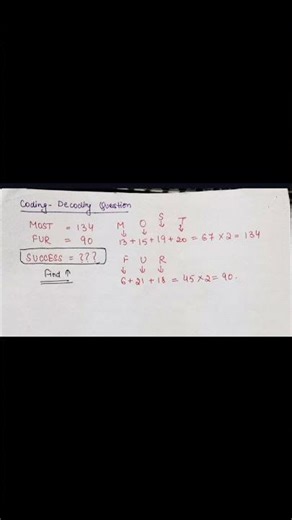 Coding-Decoding Question
MOST = 134
FUR = 90
SUCCESS = ???
Find ↑
M O S T
↓ ↓ ↓ ↓
13 + 15 + 19 + 20 = 67 × 2 = 134
F U R
↓ ↓ ↓
6 + 21 + 18 = 45 × 2 = 90.